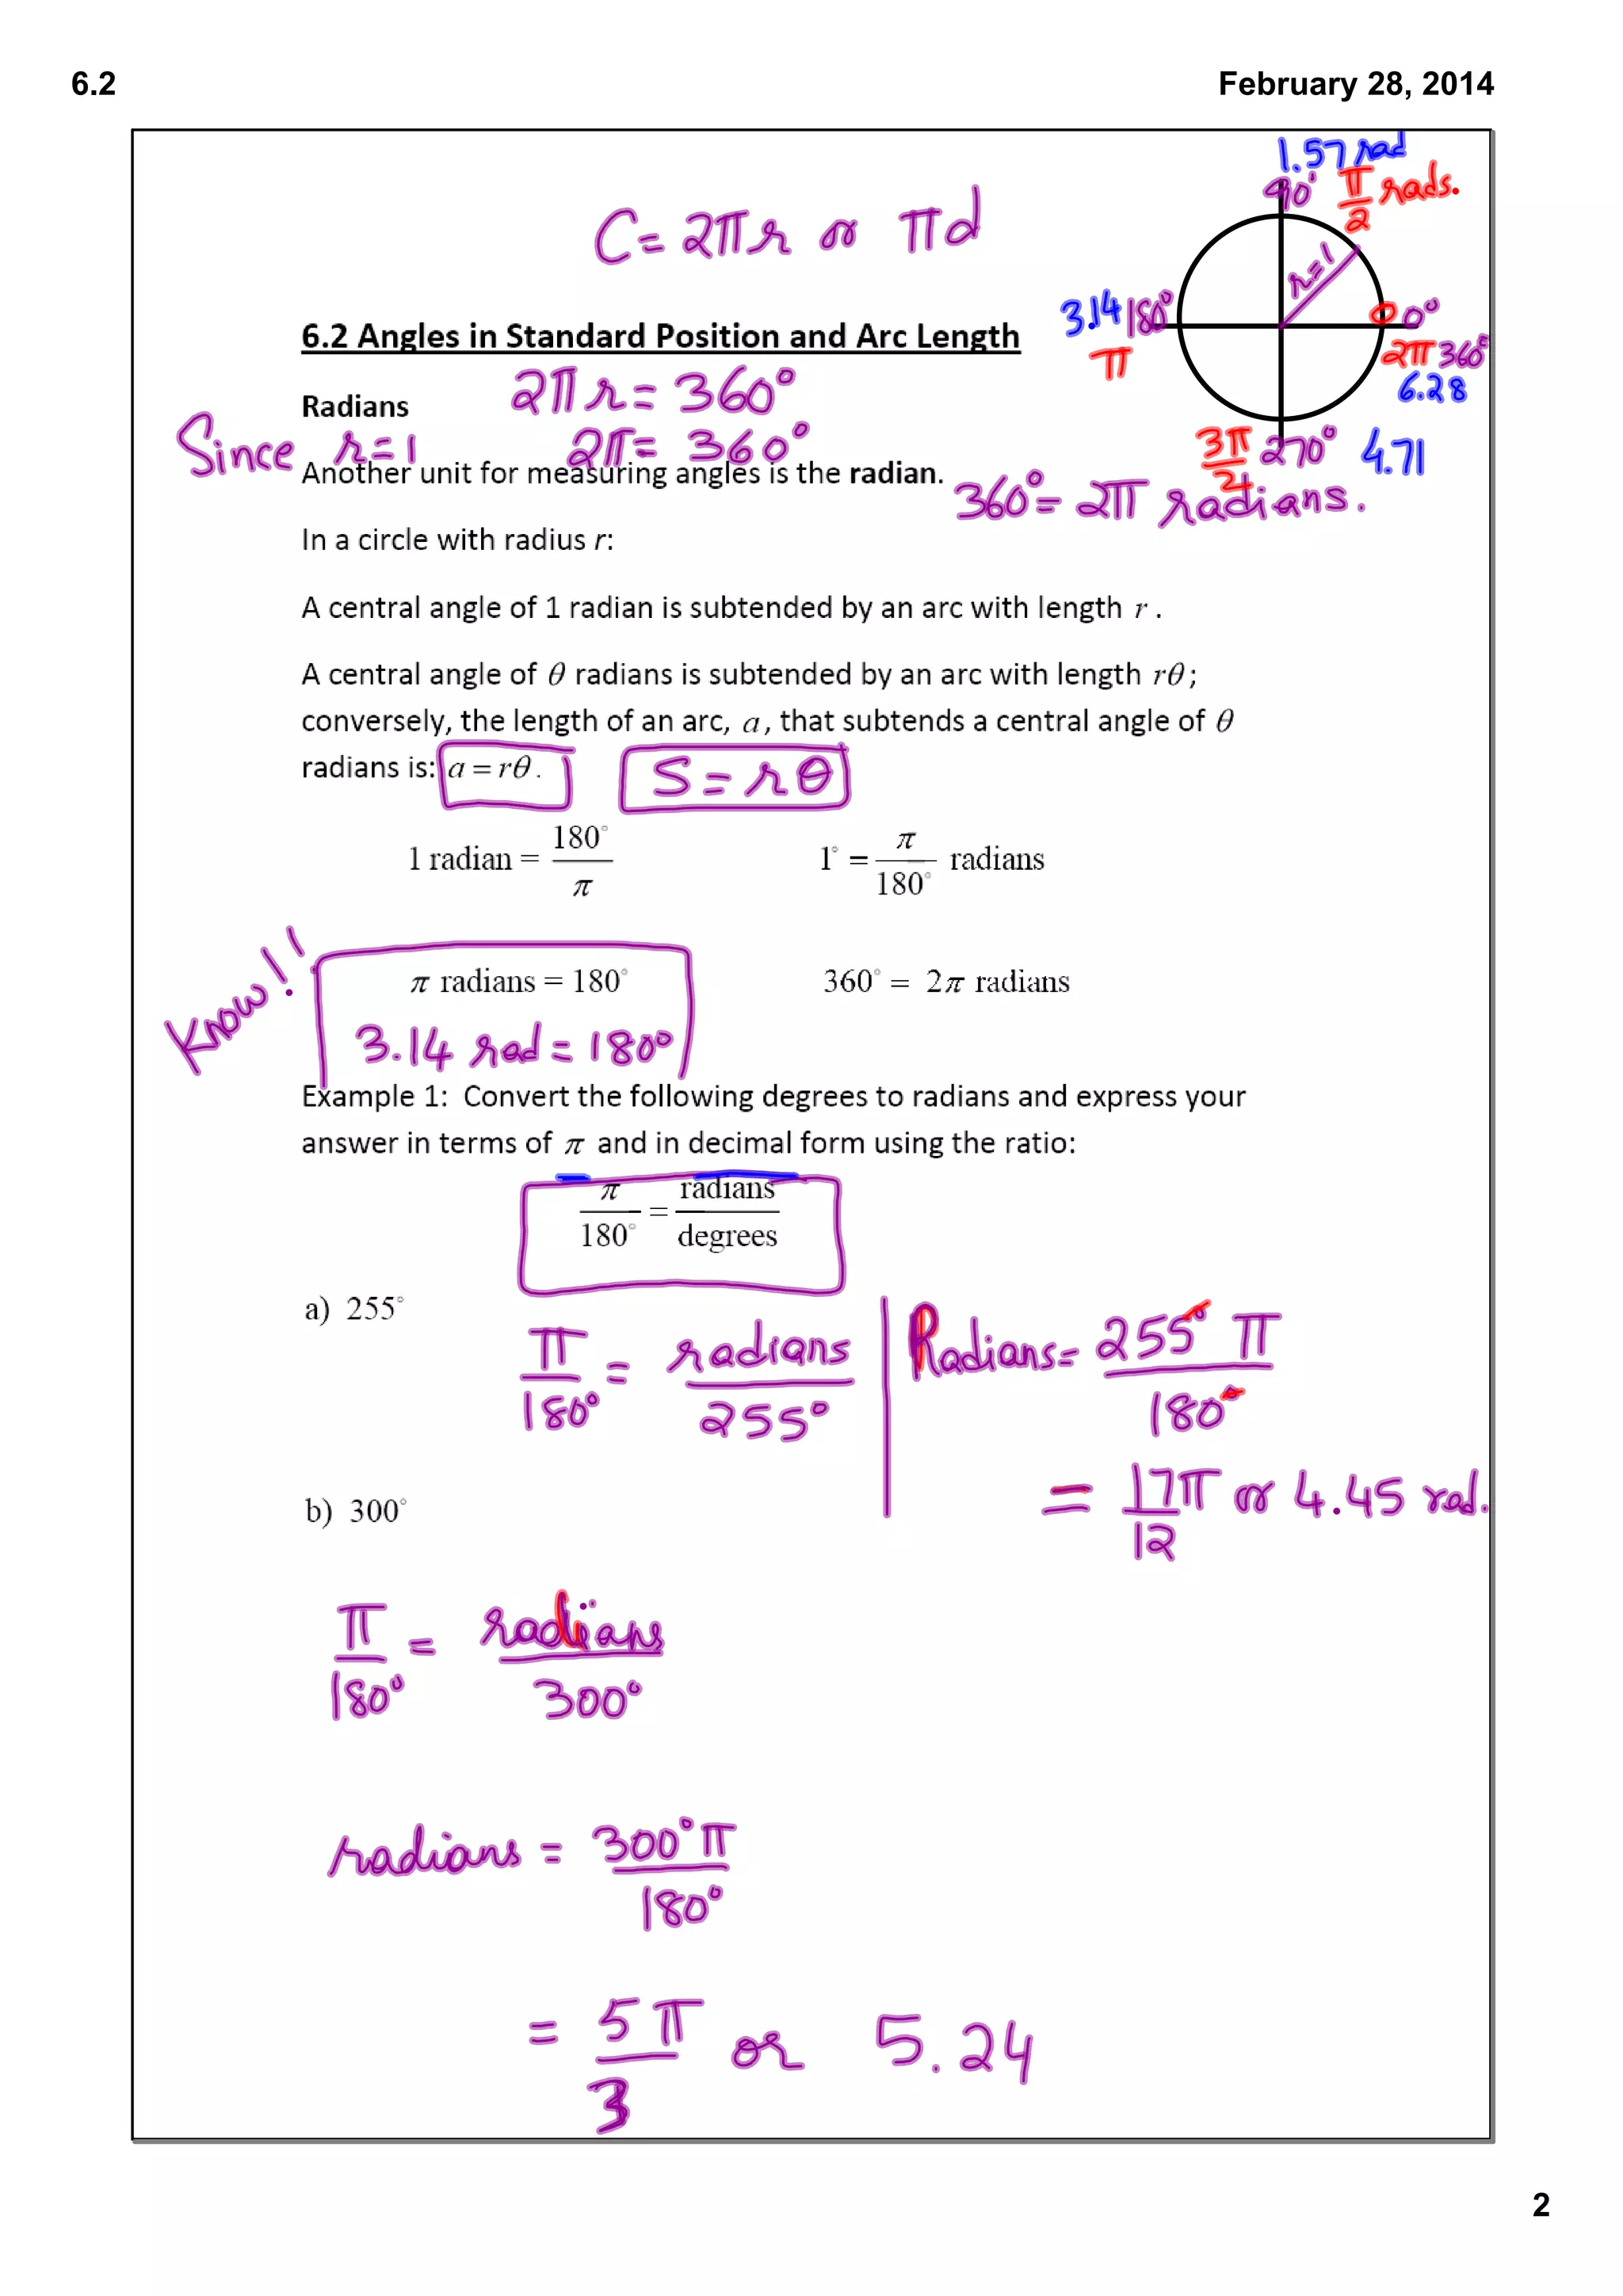 6.2
February 28, 2014
1.57 rad
90° π/2 rads.
C = 2πr or πd
r=1
3.14 180°
0 0°
π
2π 360°
6.28
6.2 Angles in Standard Position and Arc Length
2πr = 360°
Radians
Since r=1 2π = 360°
3π/2 270° 4.71
Another unit for measuring angles is the radian.
360° = 2π radians.
In a circle with radius r:
A central angle of 1 radian is subtended by an arc with length r .
A central angle of θ radians is subtended by an arc with length rθ;
conversely, the length of an arc, a, that subtends a central angle of θ
radians is: a = rθ. S = rθ
1 radian = 180°/π 1° = π/180° radians
Know!!
π radians = 180° 360° = 2π radians
3.14 rad = 180°
Example 1: Convert the following degrees to radians and express your
answer in terms of π and in decimal form using the ratio:
π/180° = radians/degrees
a) 255°
π/180° = radians/255° Radians = 255° π/180°
= 17π/12 or 4.45 rad.
b) 300°
π/180° = radians/300°
radians = 300°π/180°
= 5π/3 or 5.24
2